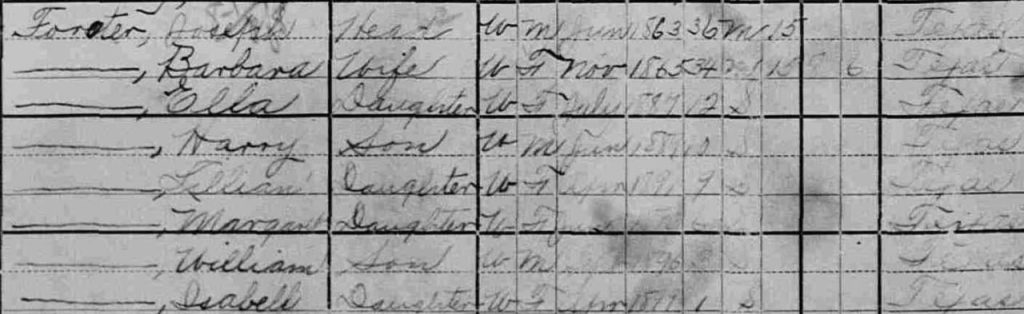 Forster, Joseph Head W M Jun 1863 36 M 15 Texas
——, Barbara Wife W F Nov 1865 34 M 15 8 6 Texas
——, Ella Daughter W F July 1887 12 S Texas
——, Harry Son W M Jun S Texas
——, Lillian Daughter W F Apr 1891 9 S Texas
——, Margaret Daughter W F Texas
——, William Son W M 1896 Texas
——, Isabell Daughter W F Apr 1 S Texas